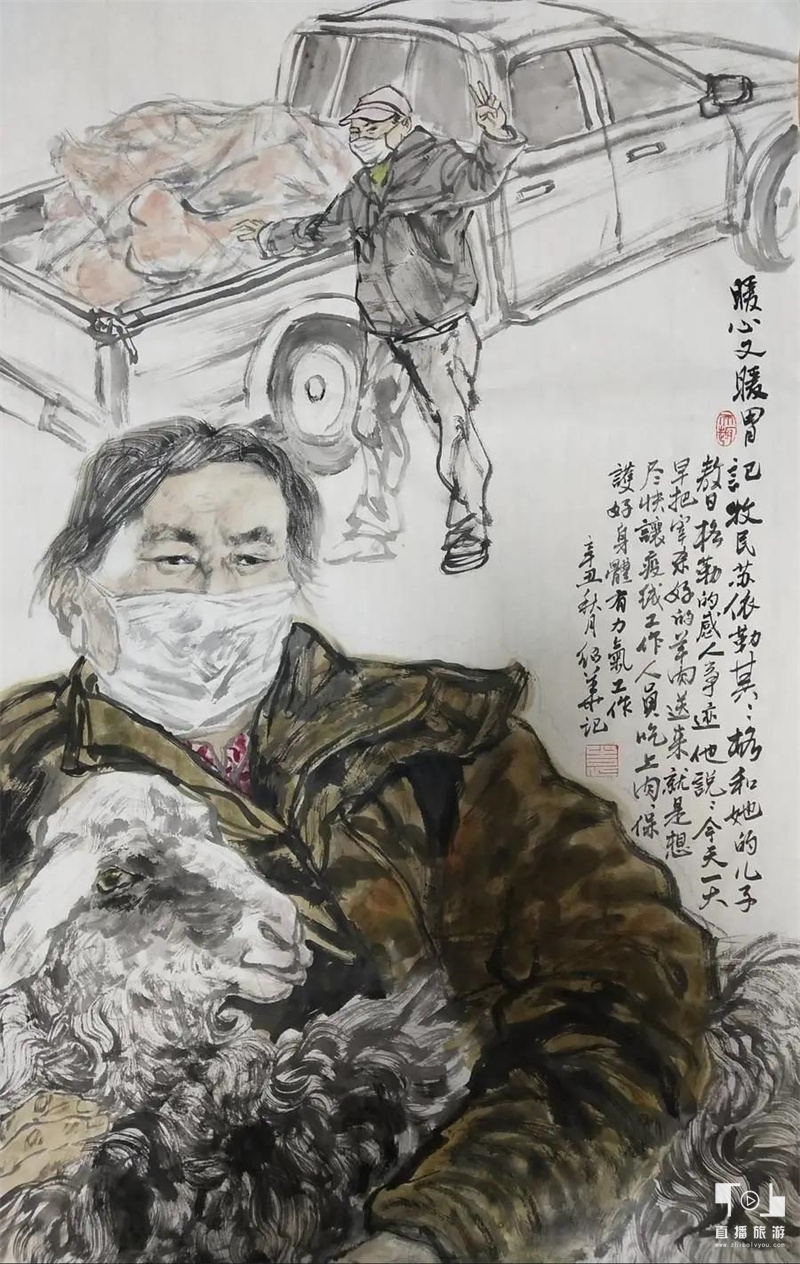 暖心又暖胃
記牧民苏依勒其〻格和她的儿子
敖日格勒的感人事迹他説〻今天一大
早把宰杀好的羊肉送来就是想
尽快讓疫线工作人員吃上肉保
護好身體有力氣工作
辛丑秋月绍華记
直播旅游
www.zhibolvyou.com